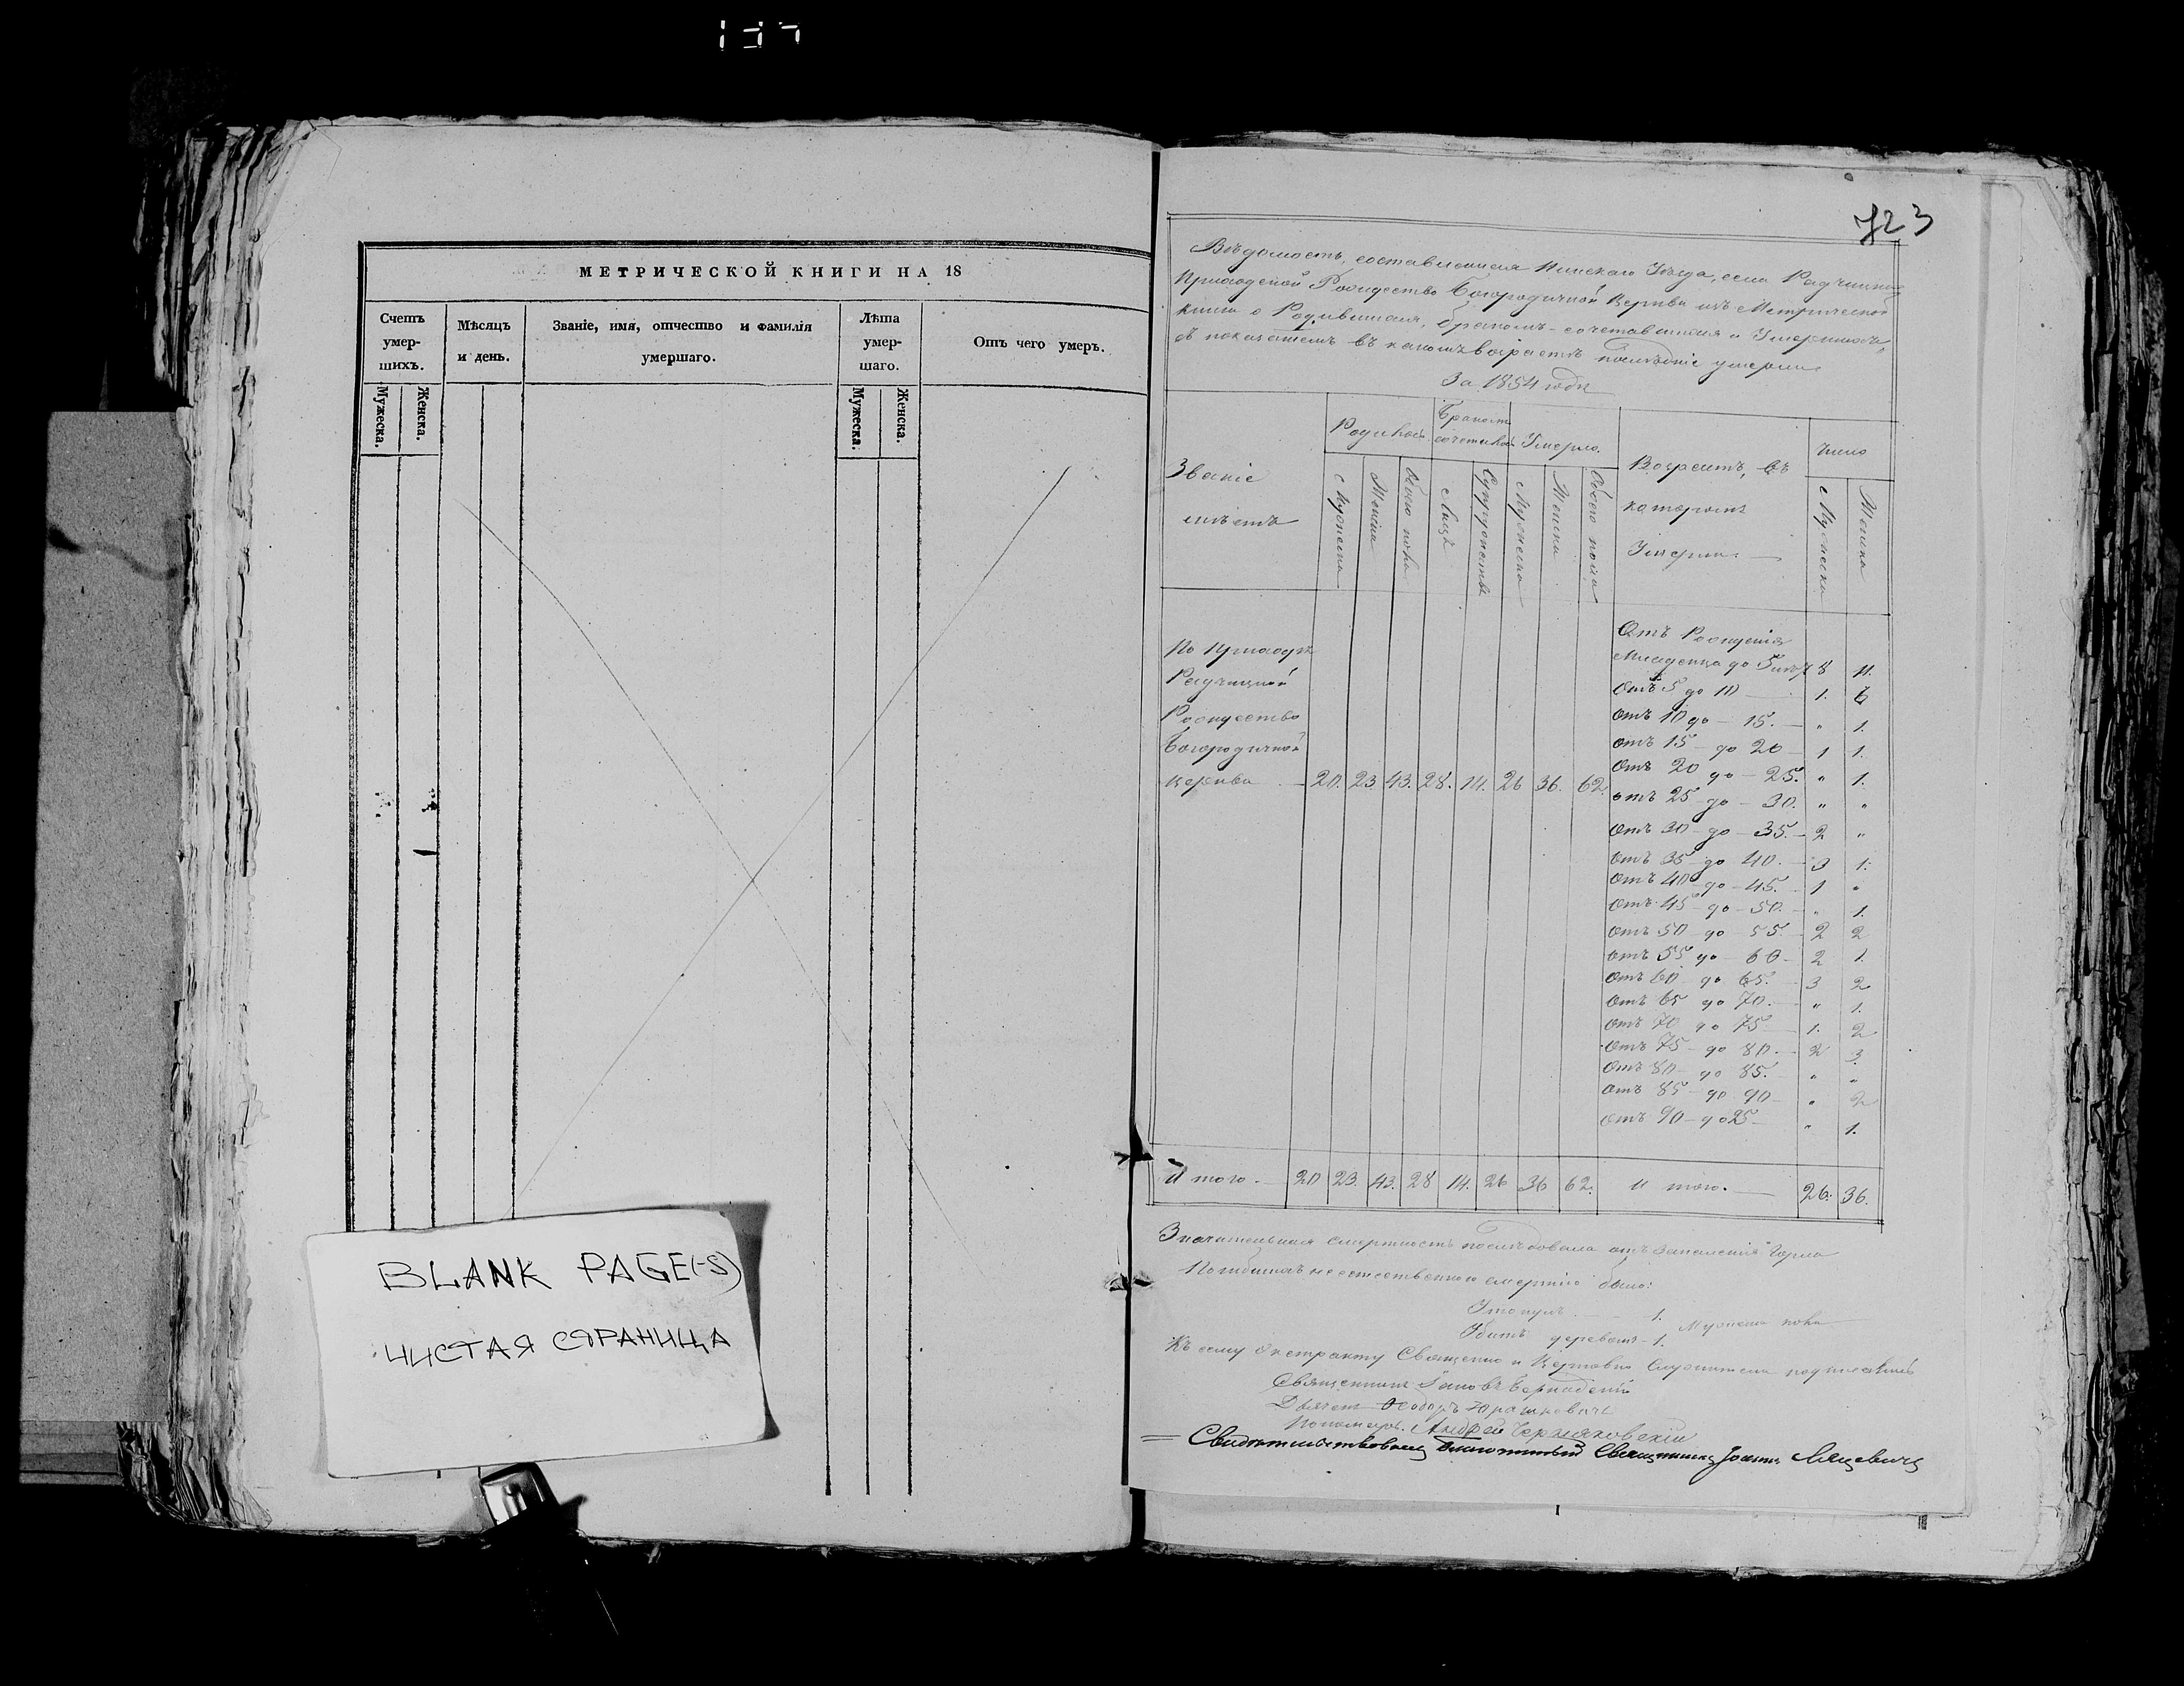 МЕТРИЧЕСКОЙ КНИГИ НА 18
Счетъ умер- шихъ.
Мѣсяцъ и день.
Званіе, имя, отчество и фамилія умершаго.
Лѣта умер- шаго.
Отъ чего умеръ.
Мужеска.
Женска.
Мужеска.
Женска.
BLANK PAGE(-S)
ЧИСТАЯ СТРАНИЦА
723
Вѣдомость, составленная Пинскаго Уѣзда, села
Приходской Рождество Богородичной Церкви изъ Метрической
книги о Родившихся, бракомъ-сочетавшихся и Умершихъ,
съ показаніемъ въ какомъ возрастѣ послѣдніе умерли
За 1854 годъ
Званіе
мѣстъ
Родилось
Бракомъ сочеталось
Умерло.
Возрастъ, въ
которомъ
Умерли
Число
Мужеска
Женска
Обоего пола
Лицъ
Супружествъ
Мужеска
Женска
Обоего пола
Мужеска
Женска
По Приходу
Рождество
Богородичной
церкви 20. 23. 43. 28. 14. 26 36. 62.
Отъ Рожденія
Младенца до 5 8
Отъ 5 до 10 1. 6
Отъ 10 до 15. " 1.
Отъ 15 до 20 1 1.
Отъ 20 до 25. " 1.
Отъ 25 до 30. " "
Отъ 30 до 35. 2 "
Отъ 35 до 40. 3 1.
Отъ 40 до 45. 1 "
Отъ 45 до 50. " 1.
Отъ 50 до 55. 2 2
Отъ 55 до 60 2 1.
Отъ 60 до 65. 3 2
Отъ 65 до 70. " 1.
Отъ 70 до 75 1. 2
Отъ 75 до 80. 2 3.
Отъ 80 до 85. " "
Отъ 85 до 90 " 2
Отъ 90 до " 1.
Итого. 20 23. 43. 28 14. 26 36 62. Итого. 26. 36.
Значительная смертность послѣдовала отъ Запаленія Горла
Погибшихъ неестественною смертію было:
Утонулъ 1.
Убитъ деревомъ 1. Мужеска пола
Къ сему Экстракту Священно и Церковно Служители подписались
Священникъ
Дьячекъ Ѳеодоръ Юрашкевичъ
Пономарь Андрей Черняковскій
Свидѣтельствовалъ Благочинный Священникъ Іоаннъ